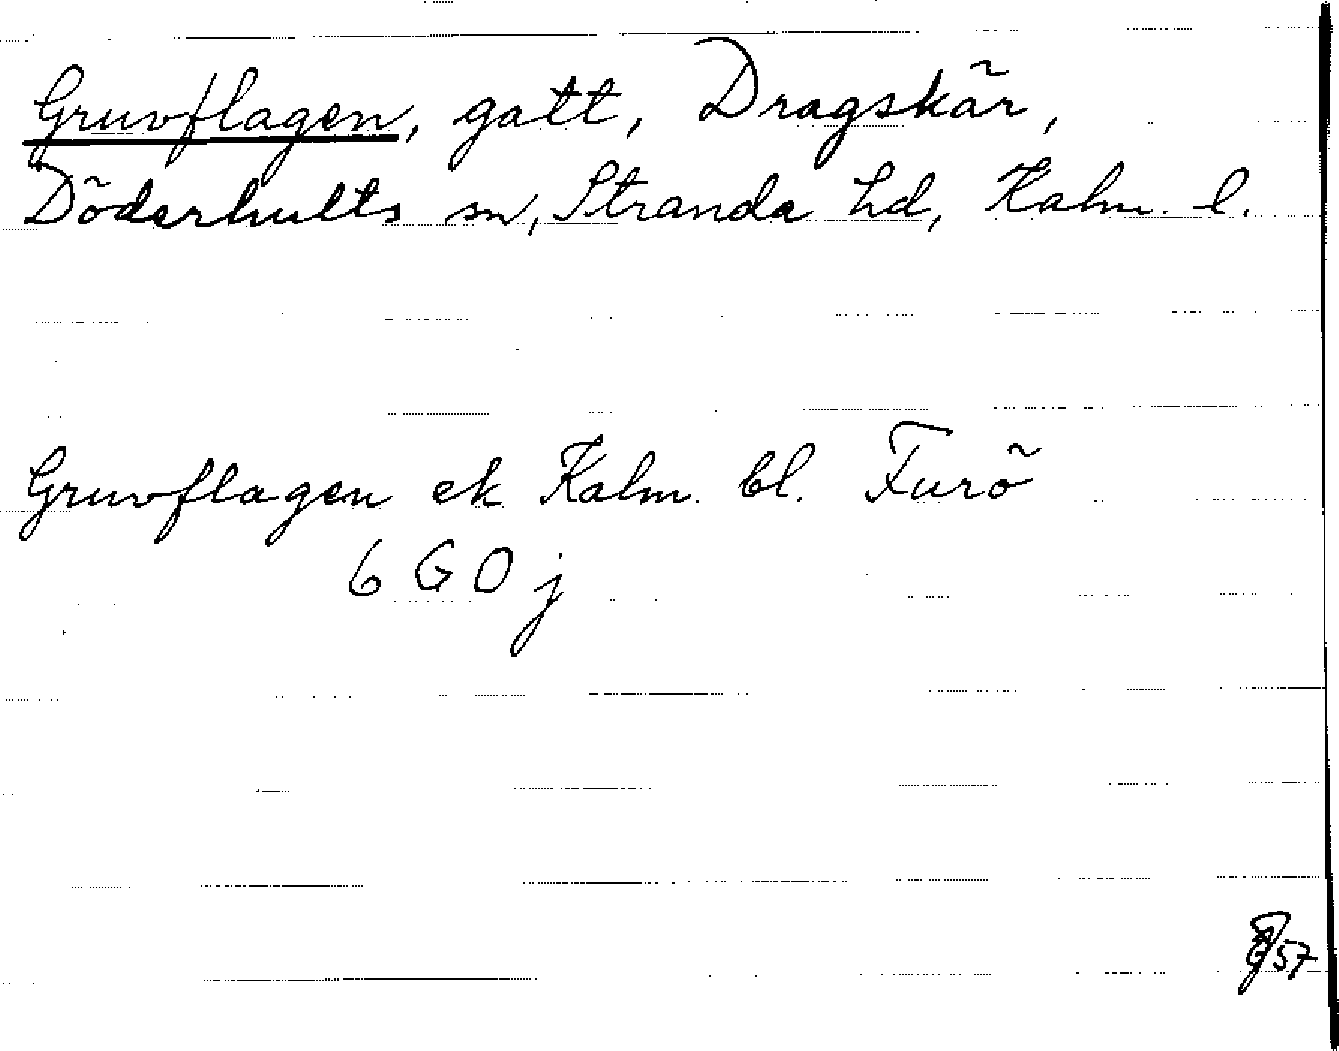 Gruvflagen, gatt, Dragskär,
Döderhults sn, Stranda hd, Kalm. l.
Gruvflagen ek Kalm. bl. Furö
6 G O j
57